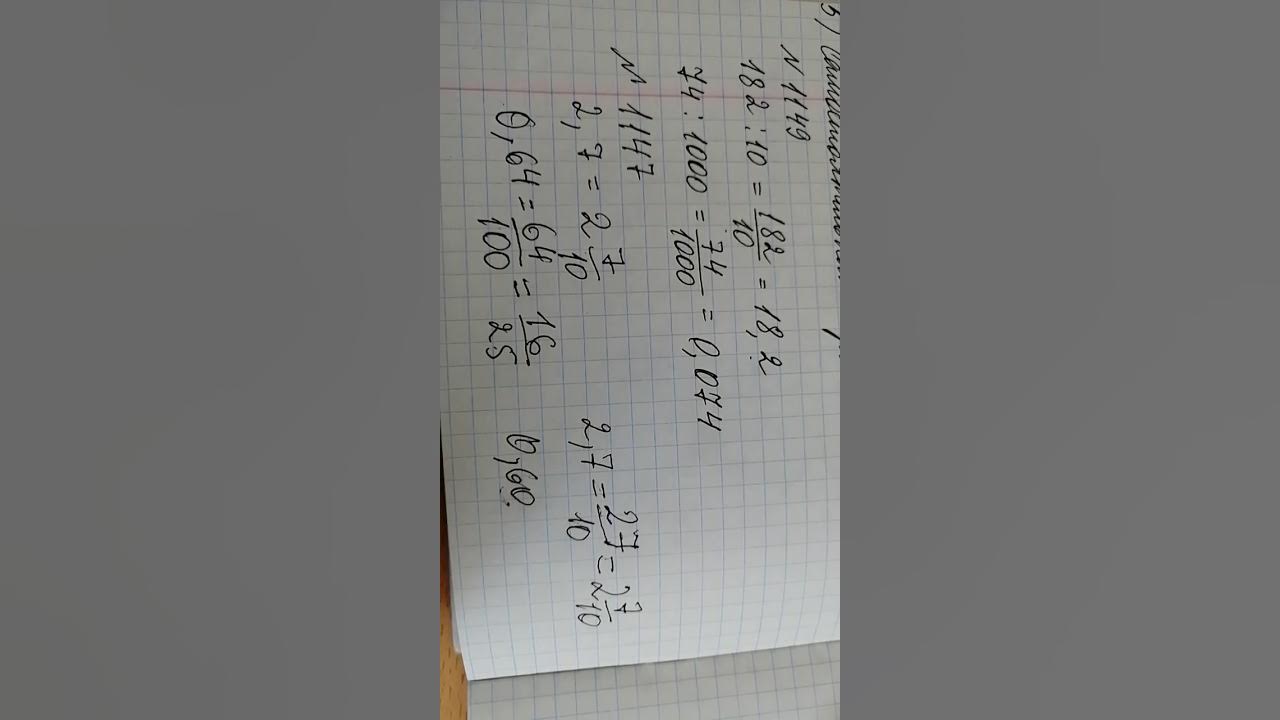 № 1149
182 : 10 = 182/10 = 18,2
74 : 1000 = 74/1000 = 0,074
№ 1147
2,7 = 2 7/10 2,7 = 27/10 = 2 7/10
0,64 = 64/100 = 16/25 0,60